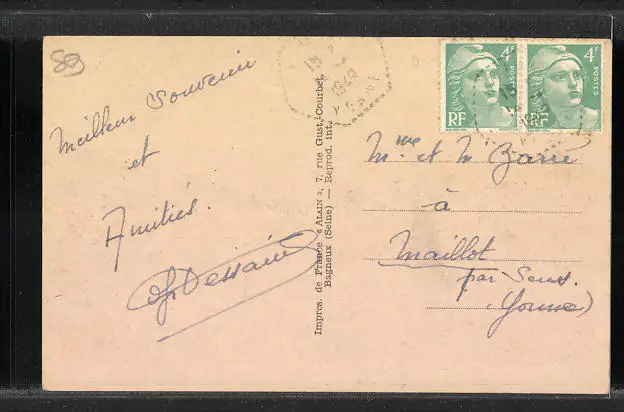 59
Meilleur Souvenir
et
Amitiés.
Dessain
Impres. de France « ALAIN », 7, rue Gust.-Courbet,
Bagneux (Seine) — Reprod. int.
4F
POSTES
RF
4F
POSTES
RF
Mme et M Barré
à
Maillot
par Sens.
(Yonne)